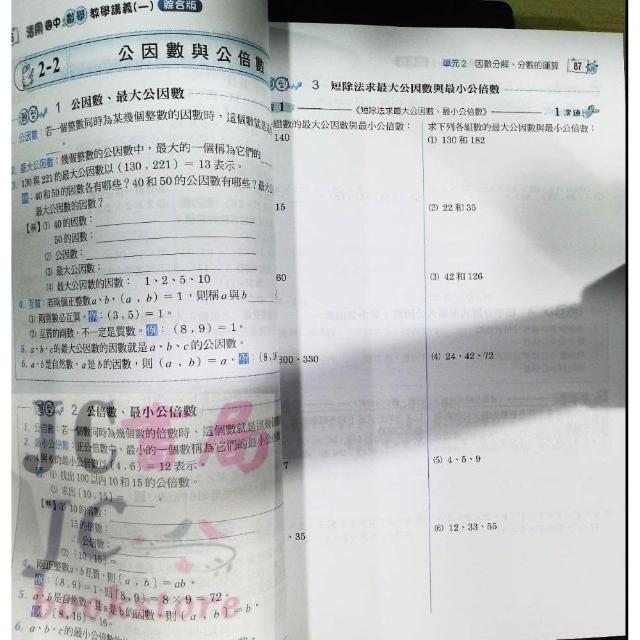 活用國中數學教學講義(一) 綜合版
2-2 公因數與公倍數
1 公因數、最大公因數
公因數：若一個整數同時為某幾個整數的因數時，這個數就是
2. 最大公因數：幾個整數的公因數中，最大的一個稱為它們的
3. 130與221的最大公因數以（130，221）＝13表示。
例：40和50的因數各有哪些？40和50的公因數有哪些？最大
最大公因數的因數？
【解】(1) 40的因數：
50的因數：
(2) 公因數：
(3) 最大公因數：
(4) 最大公因數的因數： 1、2、5、10
4. 互質：若兩個正整數a、b，（a，b）＝1，則稱a與b
(1) 兩質數必互質。例：（3，5）＝1。
(2) 互質的兩數，不一定是質數。例：（8，9）＝1。
5. a、b、c的最大公因數的因數就是a、b、c的公因數。
6. a、b是自然數，a是b的因數，則（a，b）＝a。例：（8，
2 公倍數、最小公倍數
1. 公倍數：若一個數同時為幾個數的倍數時，這個數就是這
2. 最小公倍數：正公倍數中，最小的一個數稱為它們的最小公
3. 4與6的最小公倍數以［4，6］＝12表示。
例：(1) 找出100以內10和15的公倍數。
(2) 求出［10，15］＝
【解】(1) 10的倍數：
15的倍數：
∴公倍數：
(2)［10，15］＝
4. 兩正整數a、b互質，則［a，b］＝ab。
例：（8，9）＝1，則［8，9］＝8×9＝72。
5. a、b是自然數，且a是b的因數，則［a，b］＝b。
例：［8，16］＝16。
6. a、b、c的最小公倍數的
JC書局
JC
bookstore
單元2 因數分解、分數的運算 87
3 短除法求最大公因數與最小公倍數
1 《短除法求最大公因數、最小公倍數》 1
組數的最大公因數與最小公倍數：
140
15
60
300、330
7
、35
求下列各組數的最大公因數與最小公倍數：
(1) 130 和 182
(2) 22 和 35
(3) 42 和 126
(4) 24、42、72
(5) 4、5、9
(6) 12、33、55